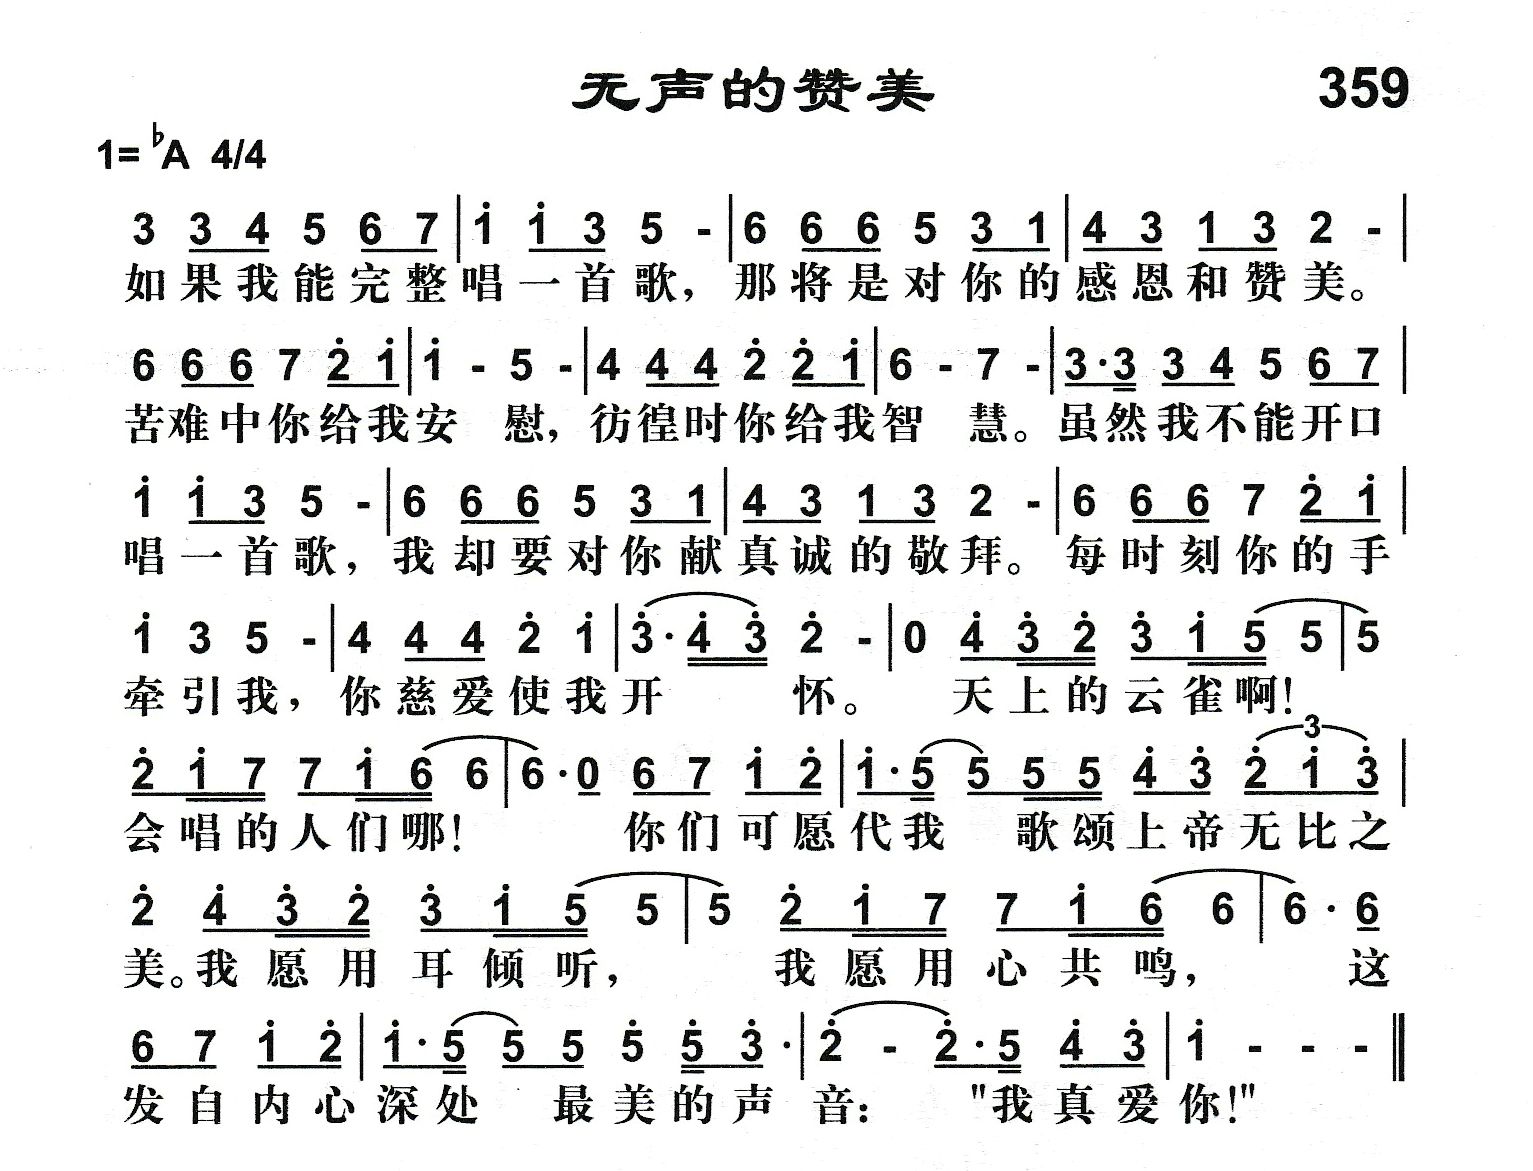 无声的赞美 359
1= ♭A 4/4
3 3 4 5 6 7 | 1̇ 1̇ 3 5 - | 6 6 6 5 3 1 | 4 3 1 3 2 - |
如果我能完整唱一首歌，那将是对你的感恩和赞美。
6 6 6 7 2̇ 1̇ | 1̇ - 5 - | 4 4 4 2̇ 2̇ 1̇ | 6 - 7 - | 3·3 3 4 5 6 7 |
苦难中你给我安 慰，彷徨时你给我智 慧。虽然我不能开口
1̇ 1̇ 3 5 - | 6 6 6 5 3 1 | 4 3 1 3 2 - | 6 6 6 7 2̇ 1̇ |
唱一首歌，我却要对你献真诚的敬拜。每时刻你的手
1̇ 3 5 - | 4 4 4 2̇ 1̇ | 3̇· 4̇ 3̇ 2̇ - | 0 4̇ 3̇ 2̇ 3̇ 1̇ 5 5 | 5
牵引我，你慈爱使我开 怀。 天上的云雀啊！
2̇ 1̇ 7 7 1̇ 6 6 | 6·0 6 7 1̇ 2̇ | 1̇·5 5 5 5 4̇ 3̇ 2̇ 1̇ 3̇ |
3
会唱的人们哪！ 你们可愿代我 歌颂上帝无比之
2̇ 4̇ 3̇ 2̇ 3̇ 1̇ 5 5 | 5 2̇ 1̇ 7 7 1̇ 6 6 | 6·6
美。我愿用耳倾听， 我愿用心共鸣， 这
6 7 1̇ 2̇ | 1̇·5 5 5 5̇ 5̇ 3̇· | 2̇ - 2̇·5̇ 4̇ 3̇ | 1̇ - - - ‖
发自内心深处 最美的声音："我真爱你！"